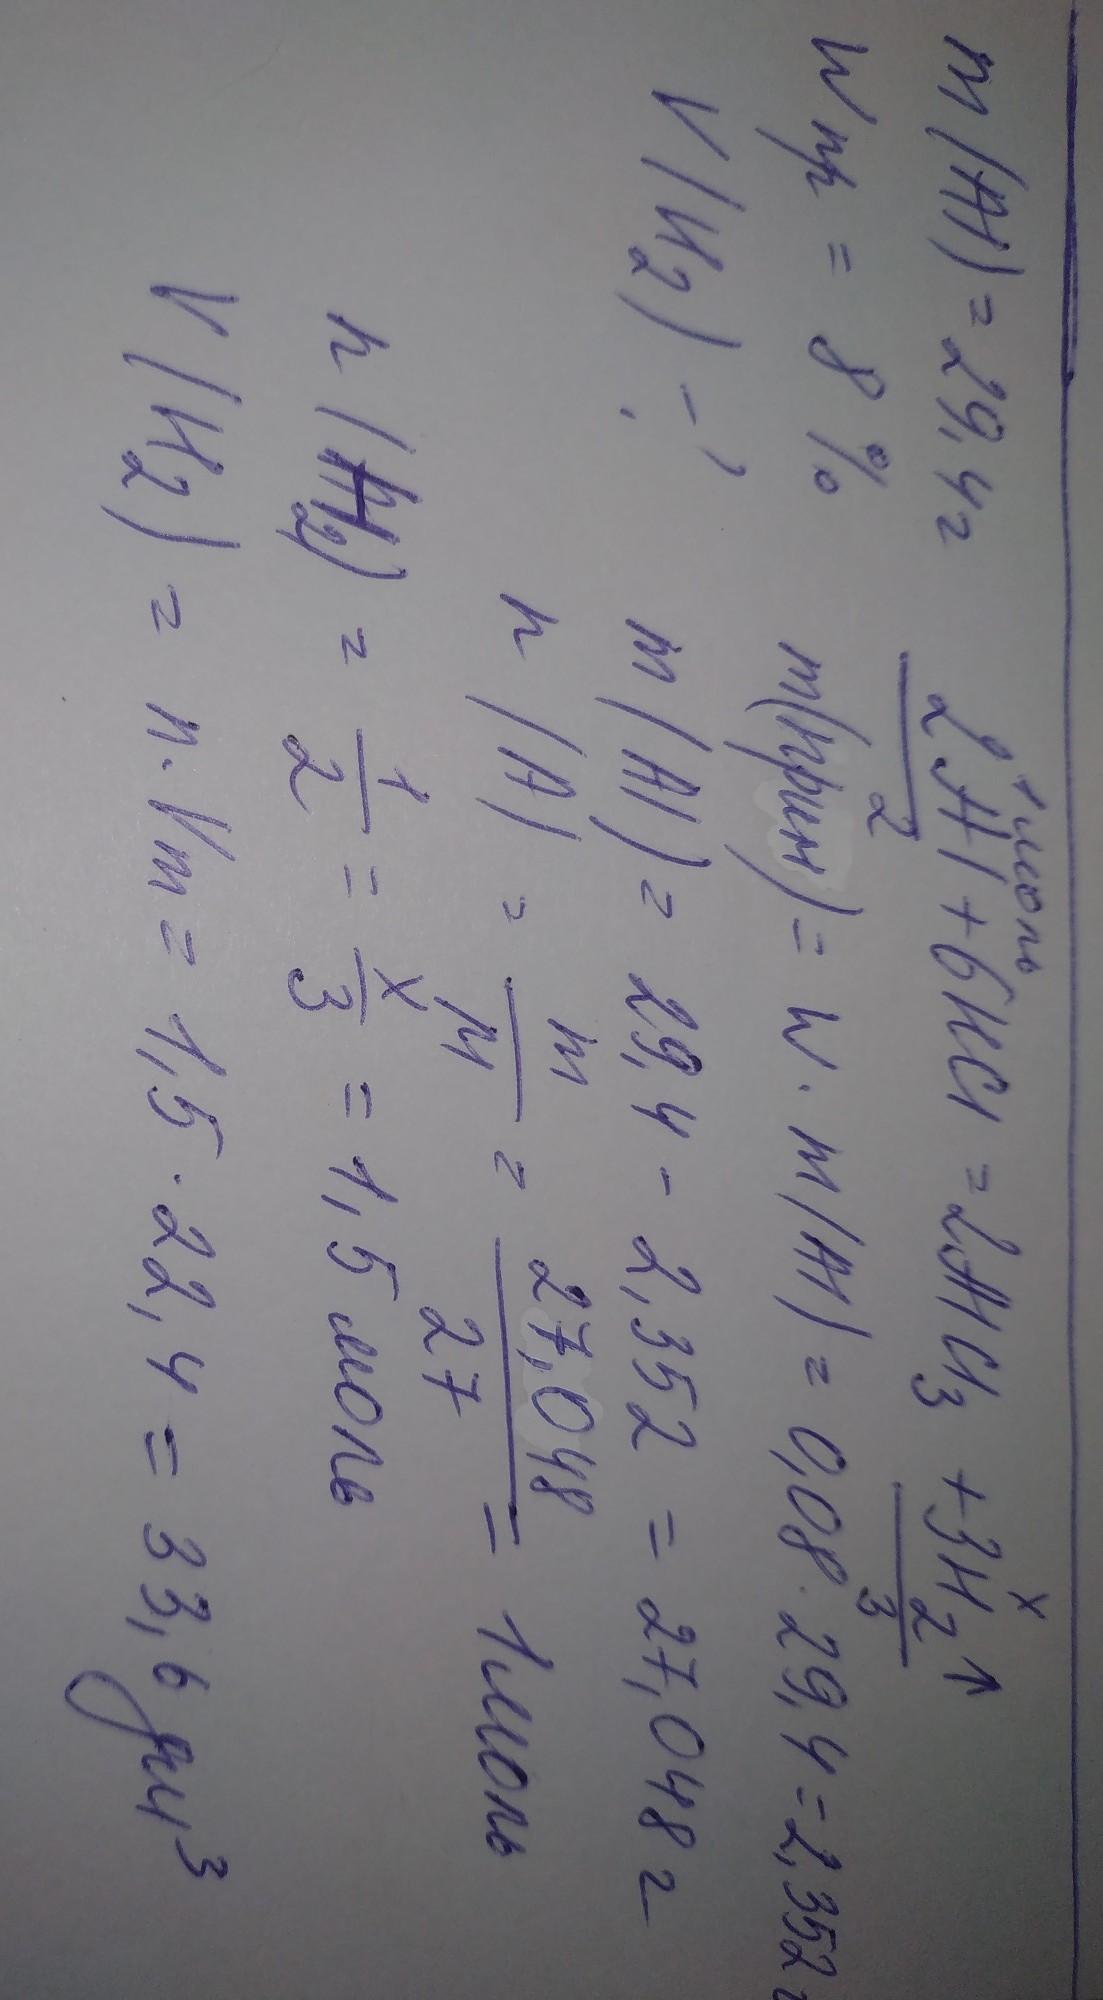 m(Al) = 29,4г
Wпр = 8 %
V(H2) - ?
1моль x
2Al + 6HCl = 2AlCl3 + 3H2↑
2 3
m(прим) = W · m(Al) = 0,08 · 29,4 = 2,352г
m(Al) = 29,4 - 2,352 = 27,048г
n(Al) = m/M = 27,048/27 = 1моль
n(H2) = 1/2 = x/3 = 1,5моль
V(H2) = n · Vm = 1,5 · 22,4 = 33,6дм³